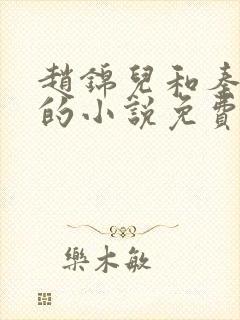 趙錦兒和秦
的小說免費
樂木敏